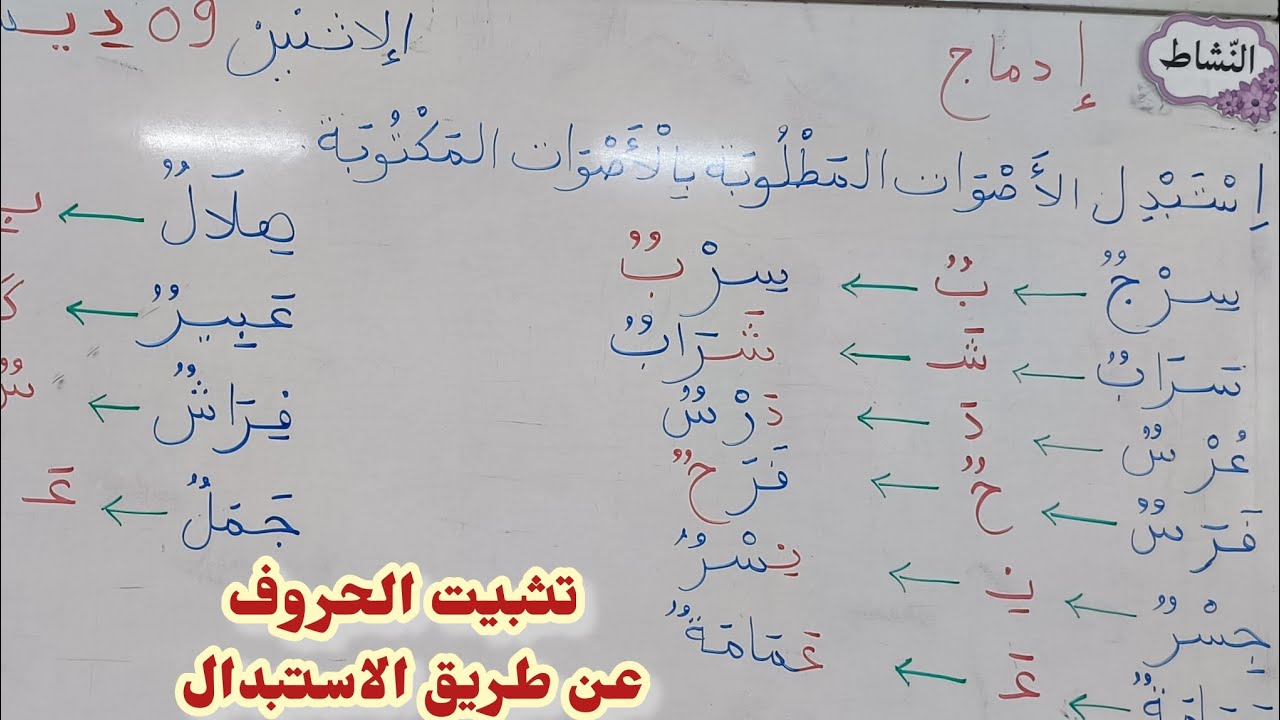 النّشاط
إدماج
الاثنين 09
اِسْتَبْدِل الأَصْوَات المَطْلُوبَة بِالْأَصْوَات المَكْتُوبَة.
سِرْجٌ ← بٌ ← سِرْبٌ
سَرَابٌ ← شَـ ← شَرَابٌ
عُرْسٌ ← دَ ← دَرْسٌ
فَرَسٌ ← حٌ ← فَرَحٌ
جِسْرٌ ← نِـ ← نِسْرٌ
← عَـ ← عَمَامَةٌ
هِلَالٌ ←
عَبِيرٌ ←
فِرَاشٌ ← سٌ
جَمَلٌ ← عَـ
تثبيت الحروف
عن طريق الاستبدال